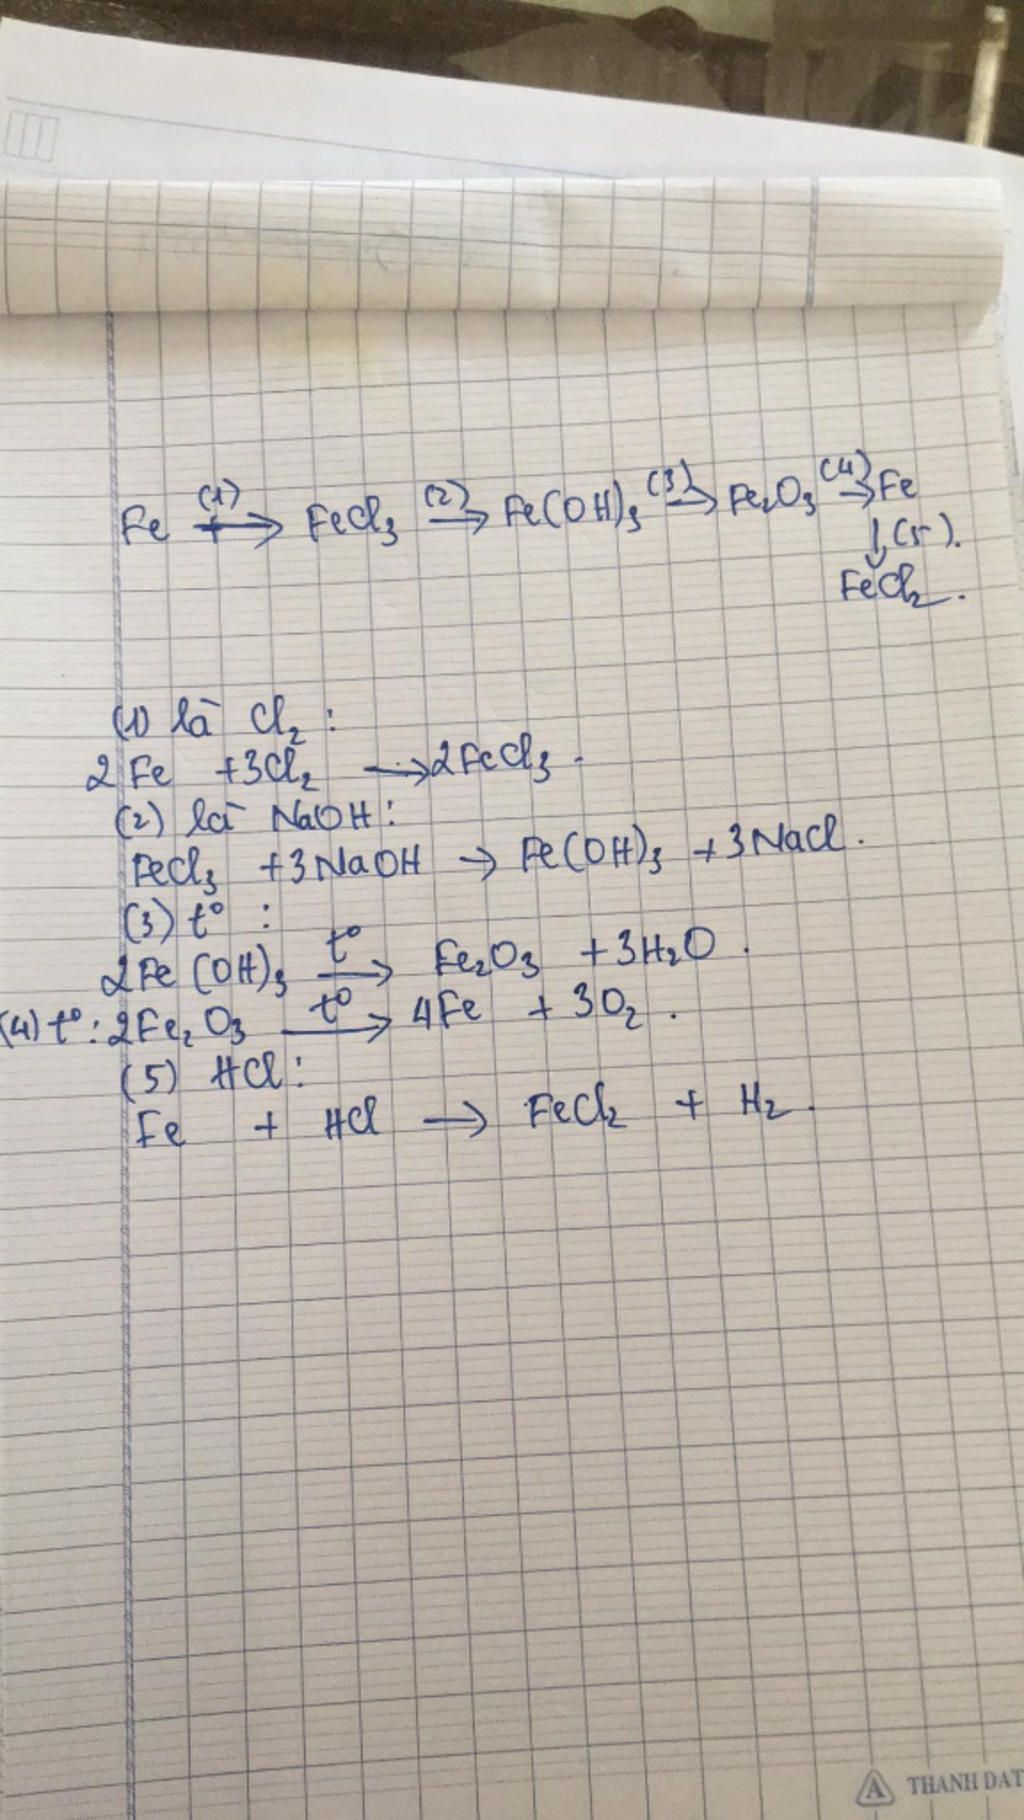 Fe (1)→ FeCl3 (2)→ Fe(OH)3 (3)→ Fe2O3 (4)→ Fe
↓(5).
FeCl2.
(1) là Cl2 :
2Fe +3Cl2 → 2FeCl3.
(2) là NaOH:
FeCl3 +3NaOH → Fe(OH)3 +3NaCl.
(3) t° :
2Fe(OH)3 t°→ Fe2O3 +3H2O.
(4) t°: 2Fe2O3 t°→ 4Fe + 3O2.
(5) HCl:
Fe + HCl → FeCl2 + H2.
THANH DAT